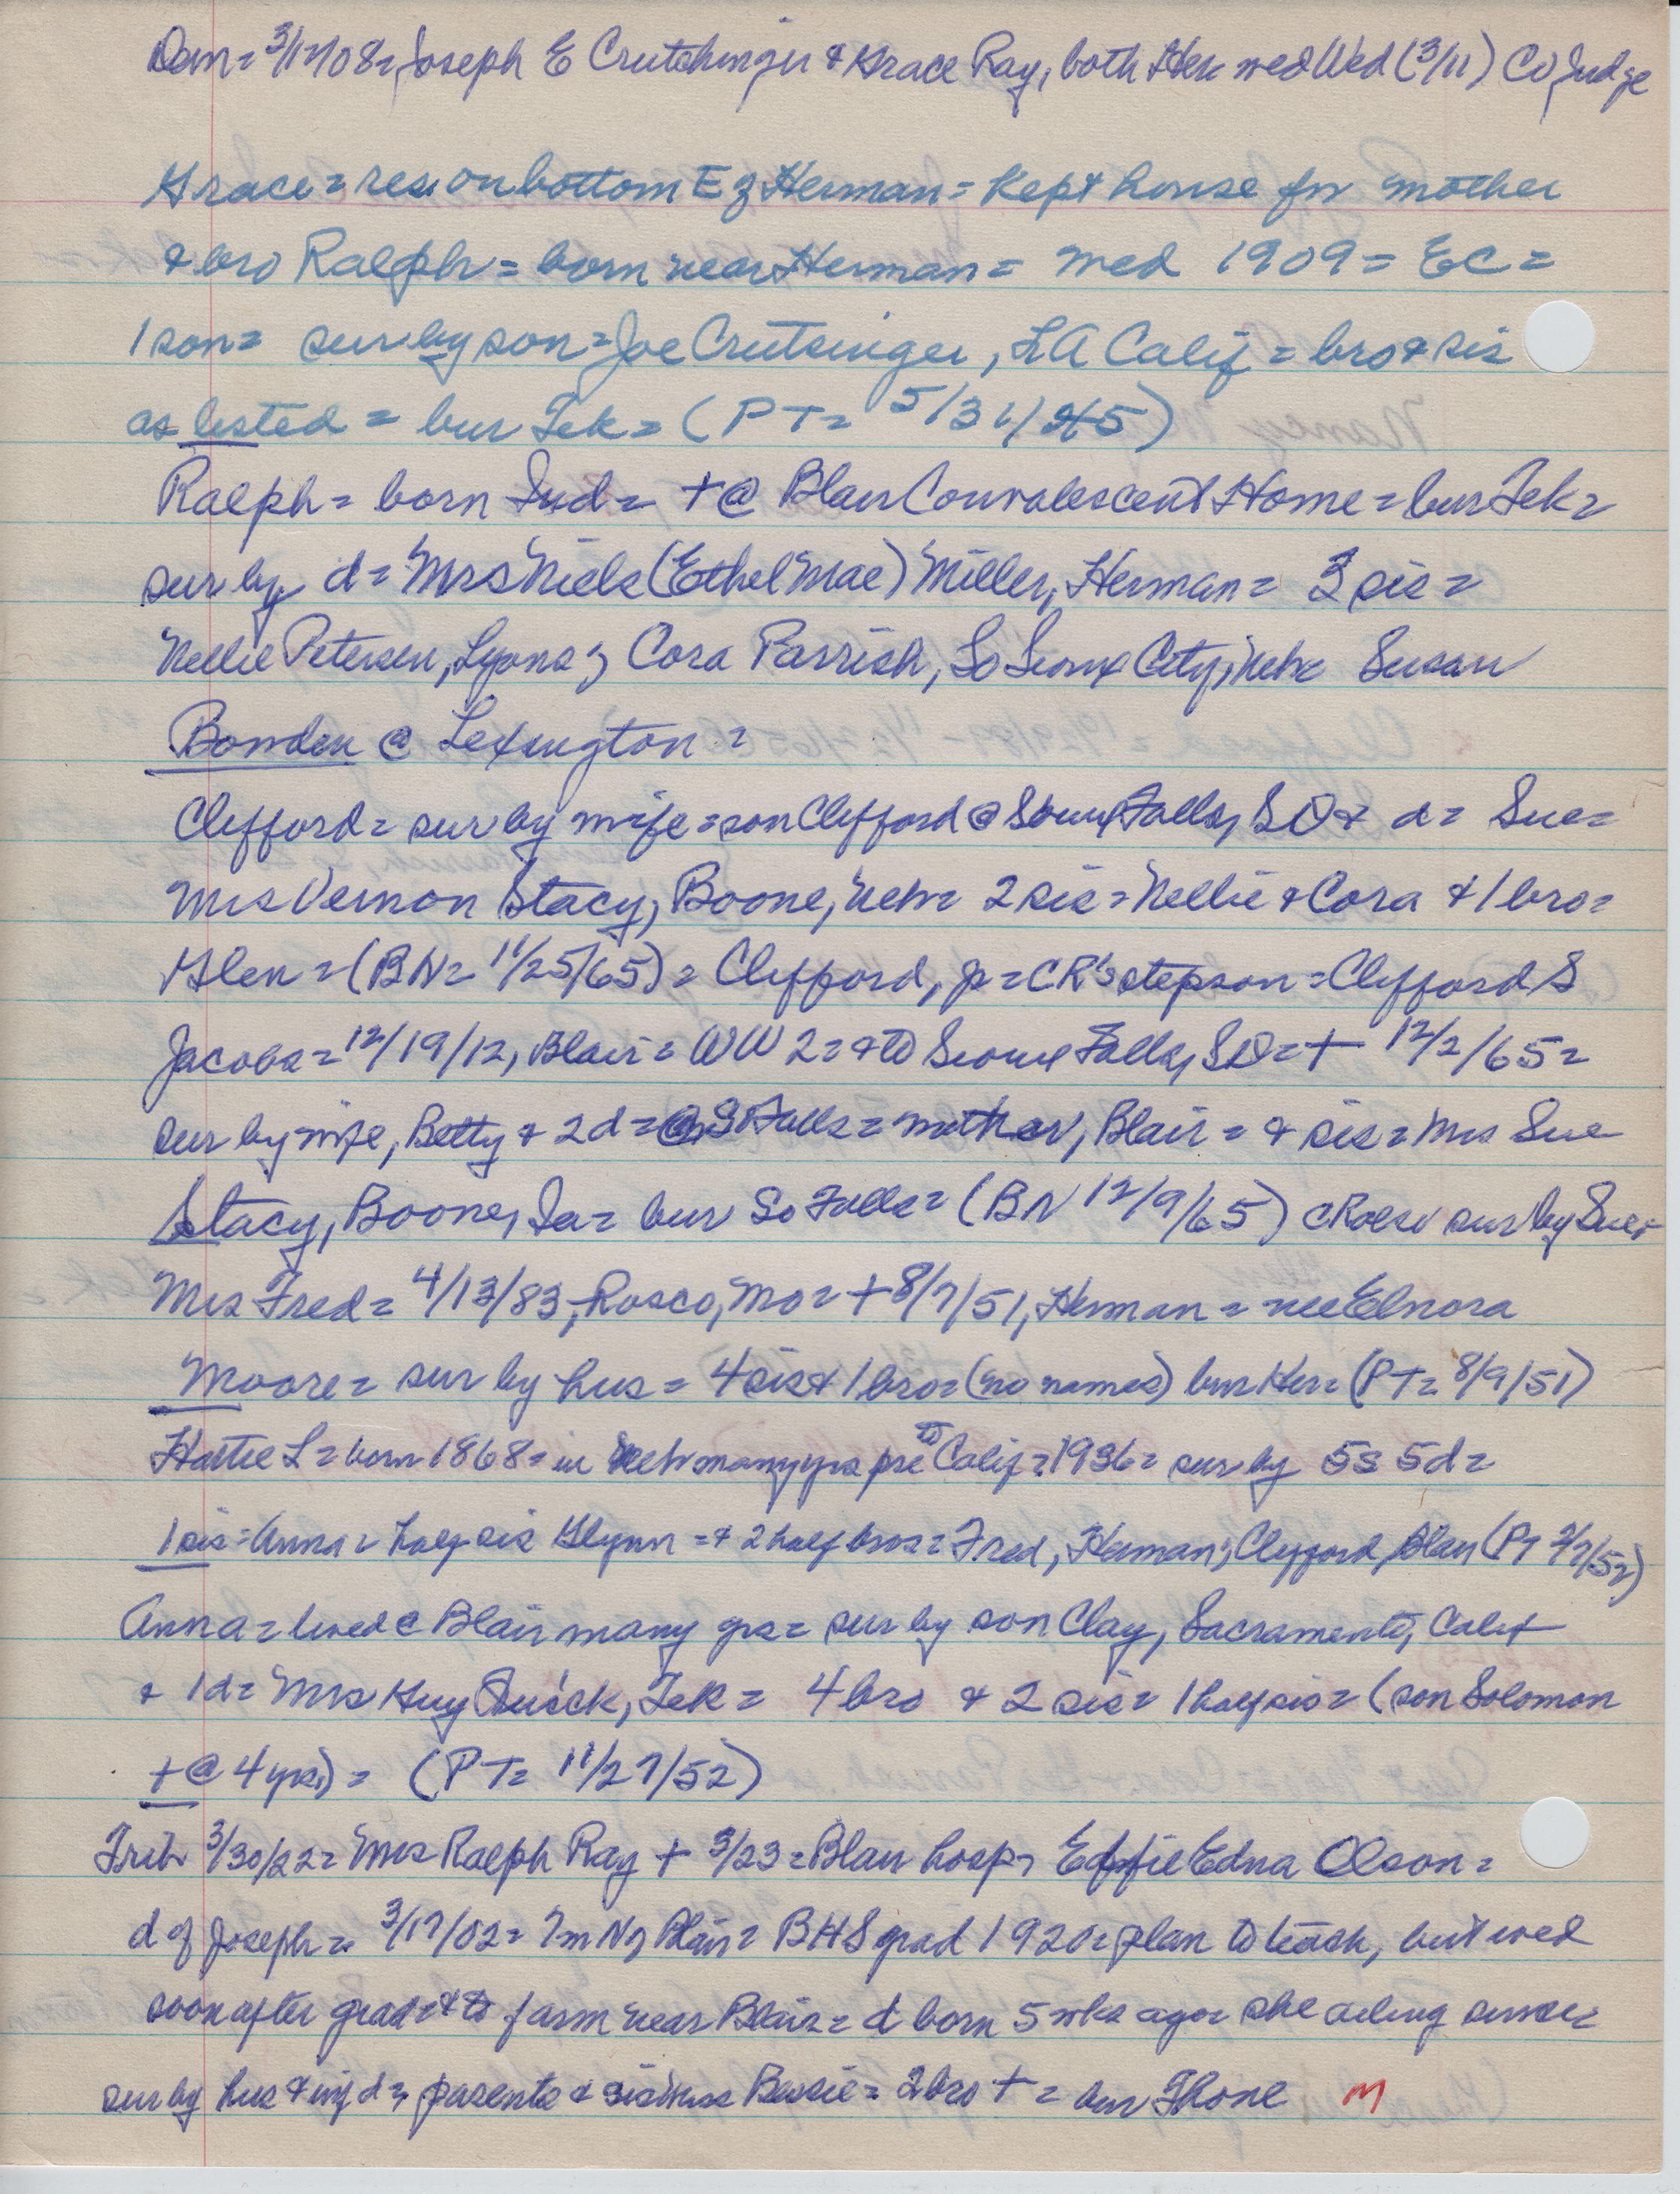 Dem = 3/12/08 = Joseph E Crutchinger & Grace Ray, both Her wed Wed (3/11) Co Judge
Grace = res on bottom E of Herman = kept house for mother
& bro Ralph = born near Herman = wed 1909 = EC =
1 son = sur by son = Joe Crutsinger, LA Calif = bro & sis
as listed = bur Tek = (PT = 5/31/45)
Ralph = born Ind = + @ Blair Convalescent Home = bur Tek =
sur by d = Mrs Niels (Ethel Mae) Miller, Herman = 3 sis =
Nellie Petersen, Lyons; Cora Parrish, So Sioux City, Neb Susan
Bowden @ Lexington =
Clifford = sur by wife = son Clifford @ Sioux Falls, SD & d = Sue =
Mrs Vernon Stacy, Boone, Neb = 2 sis = Nellie & Cora & 1 bro =
Glen = (BN = 11/25/65) = Clifford, jr = CR's stepson = Clifford S
Jacobs = 12/19/12, Blair = WW 2 = & to Sioux Falls, SD = + 12/2/65 =
sur by wife, Betty & 2 d = @ S Falls = mother, Blair = & sis = Mrs Sue
Stacy, Boone, Ia = bur So Falls = (BN 12/9/65) sur by Sue =
Mrs Fred = 4/13/83, Rosco, Mo = + 8/7/51, Herman = nee Elnora
Moore = sur by hus = 4 sis & 1 bro = (no names) bur Her = (PT = 8/9/51)
Hattie L = born 1868 = in Neb many yrs pre to Calif = 1936 = sur by 5s 5d =
1 sis = Anna = half sis Glynn = & 2 half bros = Fred, Herman; Clifford, Blair (PT /52)
Anna = lived @ Blair many yrs = sur by son Clay, Sacramento, Calif
& 1d = Mrs Guy Quick, Tek = 4 bro & 2 sis = 1 half sis = (son Solomon
+ @ 4 yrs) = (PT = 11/27/52)
Trib 3/30/22 = Mrs Ralph Ray + 3/23 = Blair hosp = Effie Edna Olson =
d of Joseph = 3/17/02 = 7m N of Blair = BHS grad 1920 = plan to teach, but wed
soon after grad = & to farm near Blair = d born 5 wks ago = she ailing since =
sur by hus & inf d = parents & sis Miss Bessie = 2 bro + = bur Fhone M